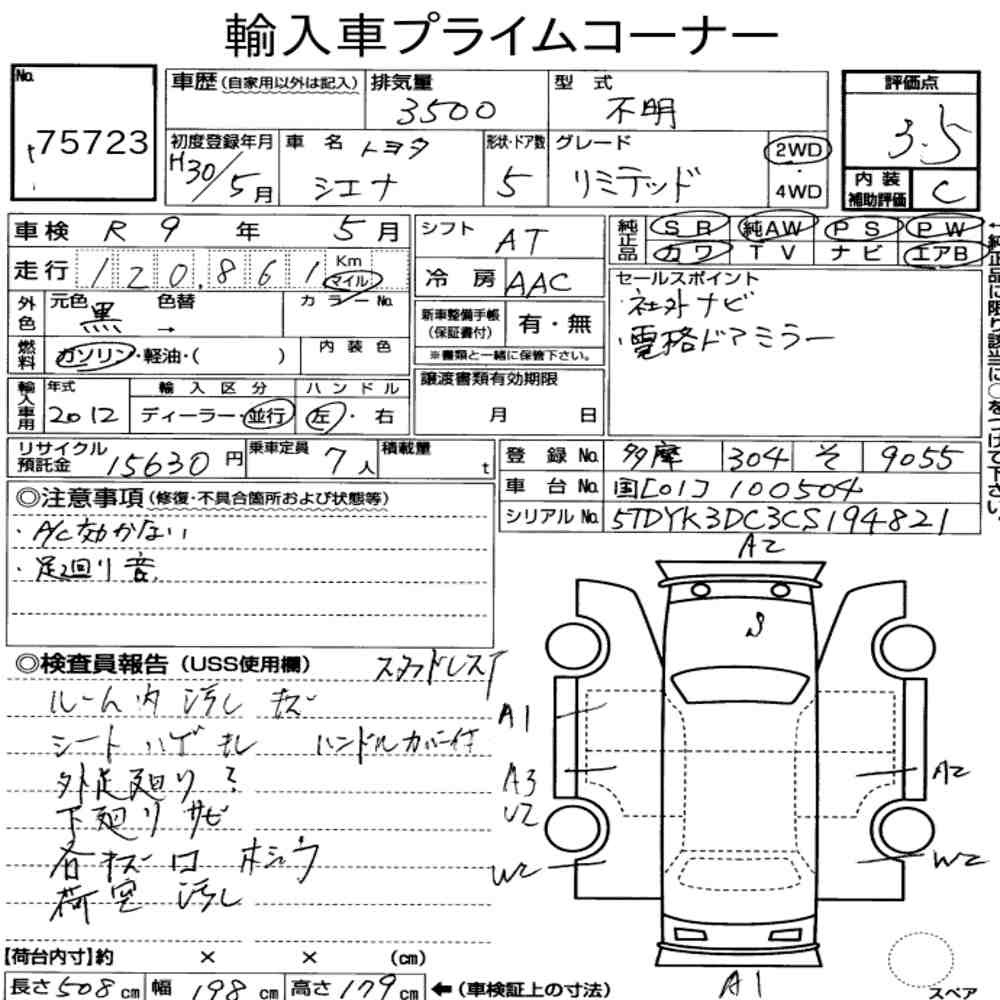 輸入車プライムコーナー
No.
75723
車歴(自家用以外は記入) 排気量 3500 型式 不明
評価点 3.5
初度登録年月 H30/5月 車名 トヨタ シエナ 形状・ドア数 5 グレード リミテッド 2WD・4WD
内装補助評価 C
車検 R 9 年 5 月
走行 120,861 Km マイル
シフト AT
冷房 AAC
純正品 SR 純AW PS PW
カワ TV ナビ エアB
外色 元色 黒 色替 → カラーNo.
燃料 ガソリン・軽油・( ) 内装色
新車整備手帳(保証書付) 有・無
※書類と一緒に保管下さい。
セールスポイント
・社外ナビ
・電格ドアミラー
←純正品に限り該当に○をつけて下さい。
輸入車用 年式 2012 輸入区分 ディーラー・並行 ハンドル 左・右
譲渡書類有効期限
月 日
リサイクル預託金 15630円 乗車定員 7人 積載量 t
登録No. 多摩 304 そ 9055
車台No. 国[01]100504
シリアルNo. 5TDYK3DC3CS194821
◎注意事項(修復・不具合箇所および状態等)
・A/C効かない
・足廻り音
◎検査員報告(USS使用欄) スタッドレスT
ルーム内 汚レ キズ
シート ハゲ キレ ハンドルカバー付
外足廻り?
下廻り サビ
各キズ ロ ホシュウ
荷室 汚レ
【荷台内寸】約 × × (cm)
長さ508cm 幅198cm 高さ179cm ←(車検証上の寸法)
A2
S
A1
A3
U2
A2
W2
W2
A1
スペア